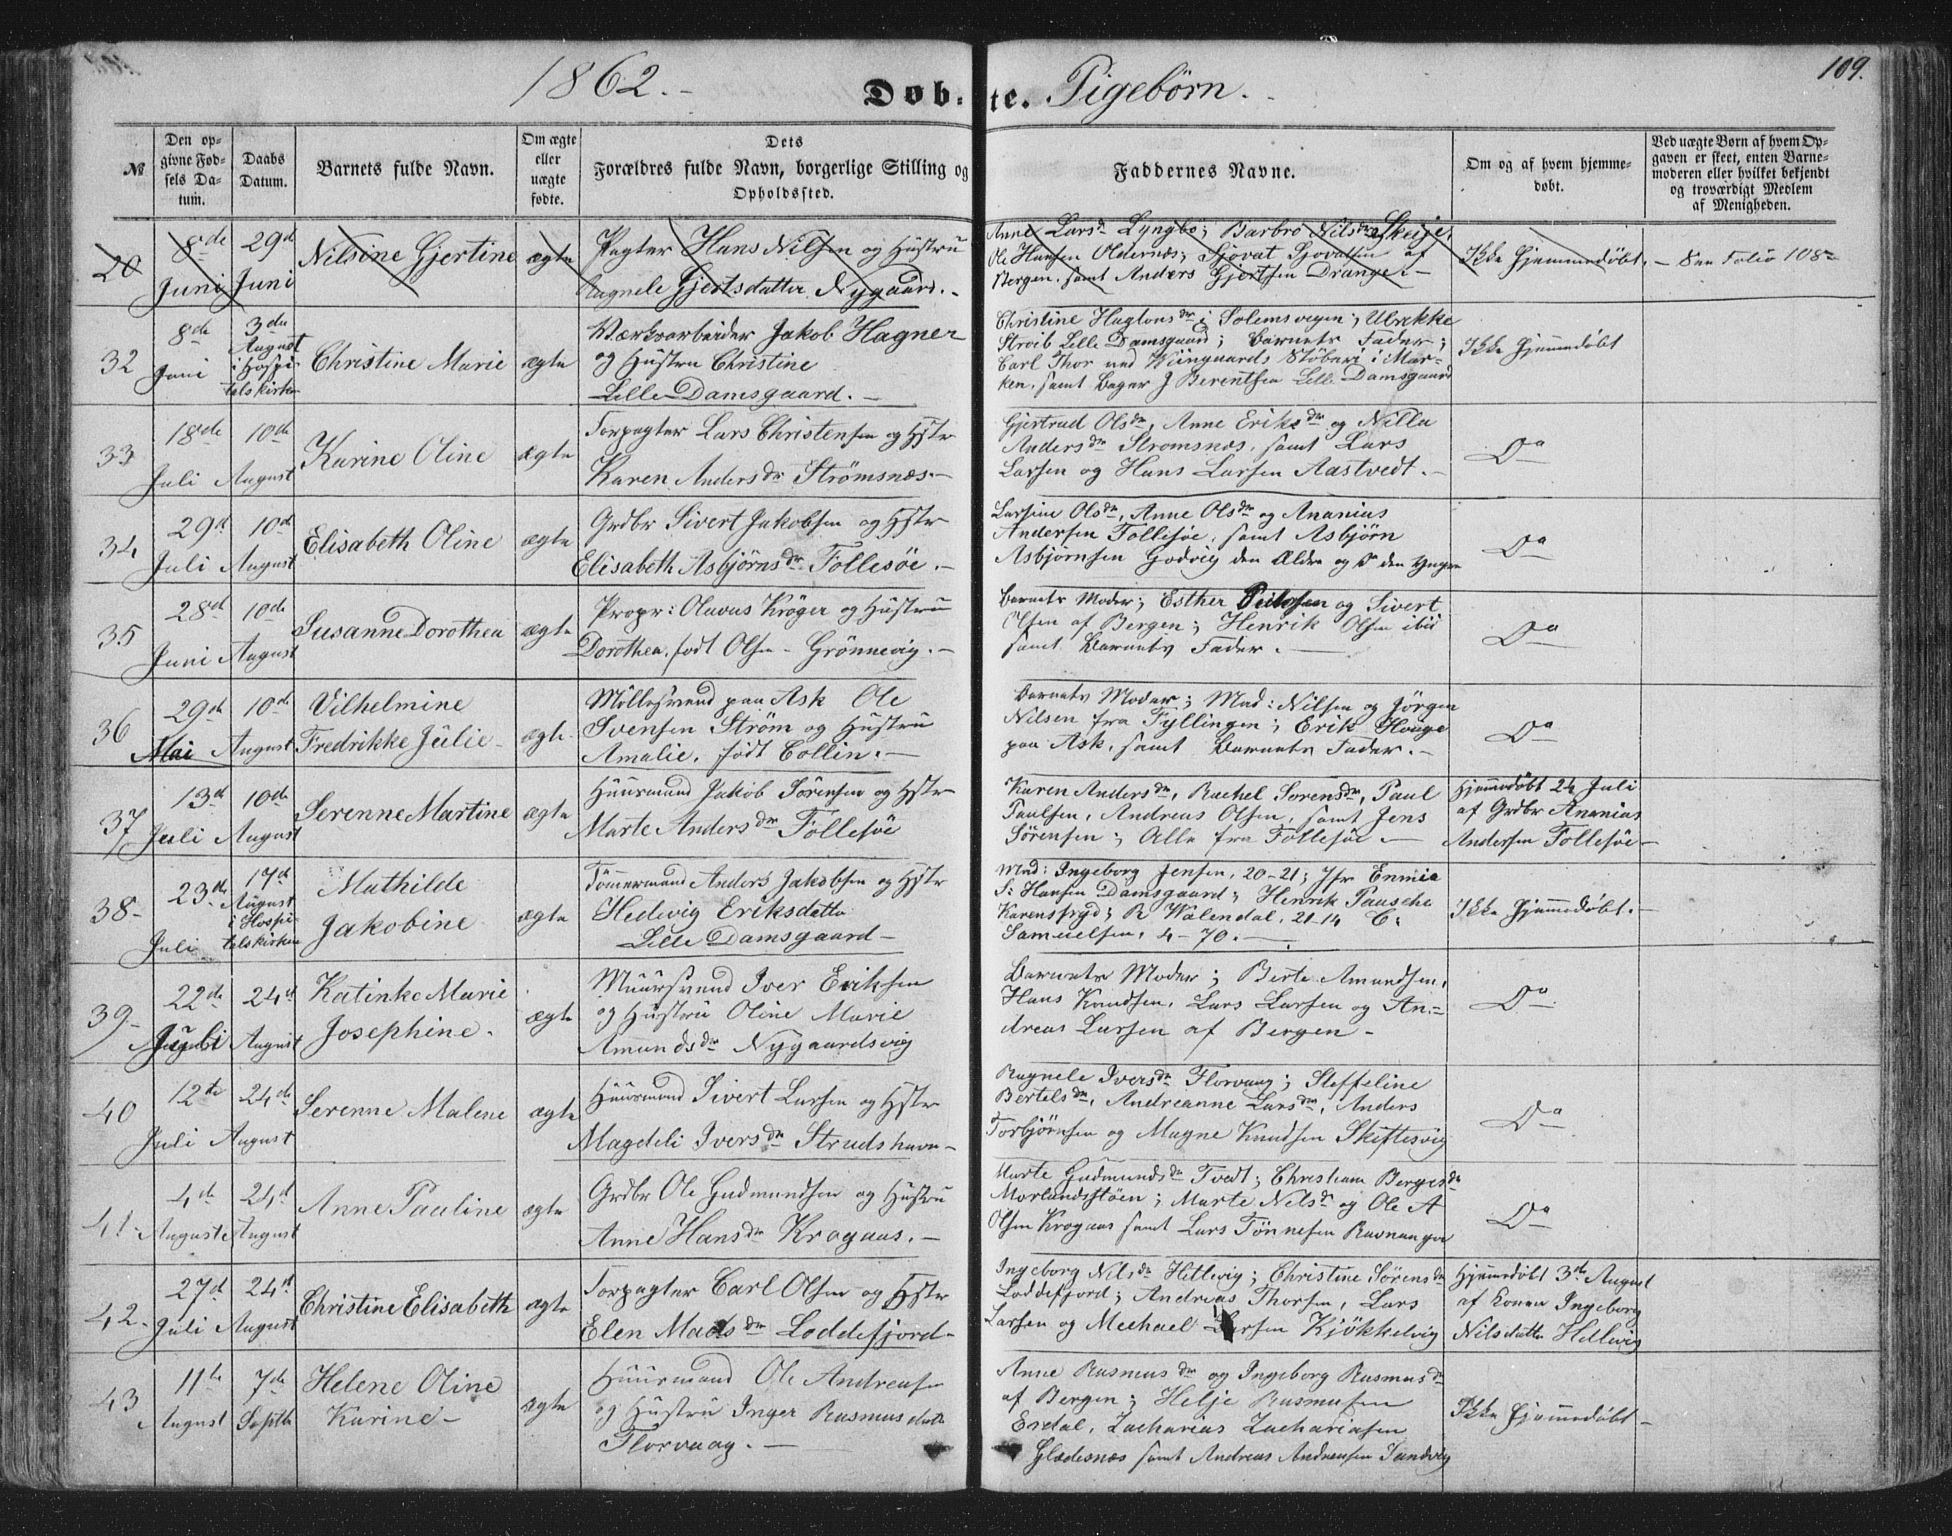 1862.
Døb-te. Pigebørn.
109.
№
Den op-
givne Fød-
sels Da-
tum.
Daabs
Datum.
Barnets fulde Navn.
Om ægte
eller
uægte
fødte.
Dets
Forældres fulde Navn, borgerlige Stilling og
Opholdssted.
Faddernes Navne.
Om og af hvem hjemme-
døbt.
Ved uægte Børn af hvem Op-
gaven er skeet, enten Barne-
moderen eller hvilket bekjendt
og troværdigt Medlem
af Menigheden.
20
8de
Juni
29d
Juni
Nilsine Gjertine
ægte
Pagter Hans Nilsen og Hustru
Ragnele Gjertsdatter Nygaard.
Anne Larsdr Lyngbø; Barbro Nilsdr Skeije,
Ole Hansen Oldernes; Sjovat Sjovatsen af
Bergen, samt Anders Gjertsen Drange.
Ikke hjemmedøbt.
See Folio 108
32
8de
Juni
3die
August
i Hospi-
talskirken
Christine Marie
ægte
Værksarbeider Jakob Hagner
og Hustru Christine
Lille Damsgaard.
Christine Hagtonsdr i Solemsvegen; Ulrikke
Stroib Lille Damsgaard; Barnets Fader;
Carl Thor ved Wiingaards Støberi i Mar-
ken, samt Bager J Berentsen Lille Damsgaard
Ikke hjemmedøbt
33
18de
Juli
10de
August
Karine Oline
ægte
Forpagter Lars Christensen og Hstr
Karen Andersdr Strømsnæs.
Gjertrud Olsdr, Anne Eriksdr og Nilla
Andersdr Stromsnæs, samt Lars
Larsen og Hans Larsen Aastvedt.
Do
34
29d
Juli
10de
August
Elisabeth Oline
ægte
Grdbr Sivert Jakobsen og Hstr
Elisabeth Asbjørnsdr Follesøe.
Larsine Olsdr, Anne Olsdr og Ananias
Andersen Follesøe, samt Asbjørn
Asbjørnsen Godvig den Ældre og D den Yngre
Do
35
28d
Juni
10de
August
Susanne Dorothea
ægte
Propr: Olavus Krøger og Hustru
Dorothea, født Olsen - Grønnevig.
Barnets Moder; Esther Pettersen og Sivert
Olsen af Bergen; Henrik Olsen ibid
samt Barnets Fader.
Do
36
29de
Mai
10de
August
Vilhelmine
Fredrikke Julie
ægte
Møllesvend paa Ask Ole
Svensen Strøm og Hustru
Amalie, født Collin.
Barnets Moder; Mad: Nilsen og Jørgen
Nilsen fra Fyllingen; Erik Hauge
paa Ask, samt Barnets Fader.
Do
37
13d
Juli
10de
August
Serenne Martine
ægte
Huusmand Jakob Sörensen og Hstr
Marte Andersdr Follesöe
Karen Andersdr, Rachel Sorensdr, Paul
Paulsen, Andreas Olsen, samt Jens
Sörensen; Alle fra Follesöe
Hjemmedøbt 24 Juli
af Grdbr Ananias
Andersen Follesøe
38
23de
Juli
17d
August
i Hospi-
talskirken
Mathilde
Jakobine
ægte
Tømmermand Anders Jakobsen og Hstr
Hedvig Eriksdatter
Lille Damsgaard
Mad: Ingeborg Jensen, 20-21; Jfr Enmia
S: Hansen Damsgaard; Henrik Pausche
Karensfryd; R Walendal, 21-14 C:
Samuelsen, 4-70.
Ikke hjemmedøbt.
39
22de
Juli
24d
August
Katinka Marie
Josephine
ægte
Muursvend Iver Eriksen
og Hustru Oline Marie
Amundsdr Nygaardsvig
Barnets Moder; Berte Amundsen,
Hans Knudsen, Lars Larsen og An-
dreas Larsen af Bergen
Do
40
12te
Juli
24de
August
Serenne Malene
ægte
Huusmand Sivert Larsen og Hstr
Magdeli Iversdr Strudshavn
Ragnele Iversdr Florvaag; Steffeline
Bertelsdr, Andreanne Larsdr, Anders
Torbjørnsen og Magne Knudsen Skiftesvig
Do
41
4de
August
24d
August
Anne Pauline
ægte
Grdbr Ole Gudmundsen og Hustru
Anne Hansdr Kragaas.
Marte Gudmundsdr Tvedt; Christiane Bergesdr
Morlandsstöen; Marte Nilsdr og Ole A
Olsen Krogaas samt Lars Tönnesen Ravnanger
Do
42
27d
Juli
24d
August
Christine Elisabeth
ægte
Forpagter Carl Olsen og Hstr
Elen Madsdr Loddefjord
Ingeborg Nilsdr Hillevig; Christine Sörensdr
Loddefjord; Andreas Thorsen, Lars
Larsen og Mechael Larsen Kjökkelvig
Hjemmedøbt 3de August
af Konen Ingeborg
Nilsdatter Hillevig
43
11te
August
7de
Septbr
Helene Oline
Karine
ægte
Huusmand Ole Andreasen
og Hustru Inger Rasmusdatter
Florvaag.
Anne Rasmusdr og Ingeborg Rasmusdr
af Bergen; Helje Rasmussen
Erdal, Zacharias Zachariasen
Glædesnæs samt Andreas Andreassen Sandvig
Ikke hjemmedøbt